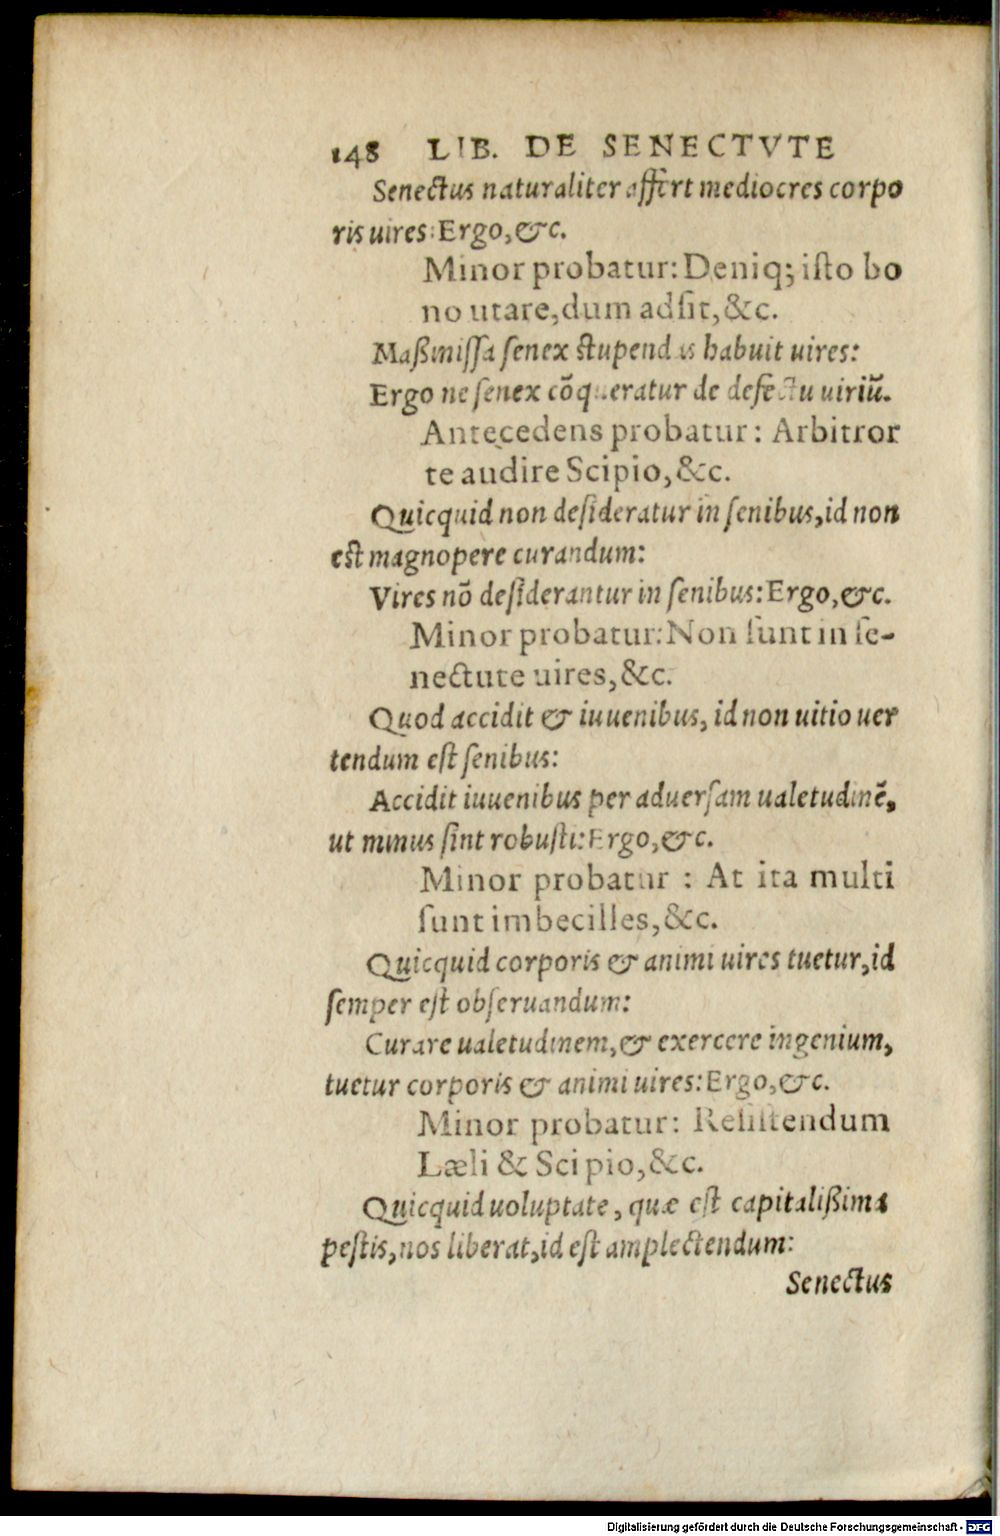 148 LIB. DE SENECTVTE
Senectus naturaliter affert mediocres corpo
ris uires: Ergo, &c.
Minor probatur: Deniq; isto bo
no utare, dum adsit, &c.
Maßinissa senex stupendas habuit uires:
Ergo ne senex cõqueratur de defectu uiriũ.
Antecedens probatur: Arbitror
te audire Scipio, &c.
Quicquid non desideratur in senibus, id non
est magnopere curandum:
Vires nõ desiderantur in senibus: Ergo, &c.
Minor probatur: Non sunt in se-
nectute uires, &c.
Quod accidit & iuuenibus, id non uitio uer
tendum est senibus:
Accidit iuuenibus per aduersam ualetudinẽ,
ut minus sint robusti: Ergo, &c.
Minor probatur : At ita multi
sunt imbecilles, &c.
Quicquid corporis & animi uires tuetur, id
semper est obseruandum:
Curare ualetudinem, & exercere ingenium,
tuetur corporis & animi uires: Ergo, &c.
Minor probatur: Resistendum
Læli & Scipio, &c.
Quicquid uoluptate, quæ est capitalißima
pestis, nos liberat, id est amplectendum:
Senectus
Digitalisierung gefördert durch die Deutsche Forschungsgemeinschaft - DFG